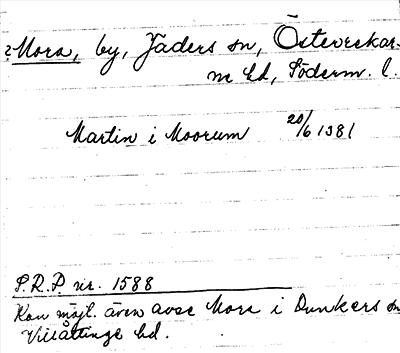 ?Mora, by, Jäders sn, Österrekar-
ne hd, Söderm. l.
Martin i Moorum 20/6 1381
S.R.P. nr. 1588
Kan möjl. även avse Mora i Dunkers sn
Villåttinge hd.